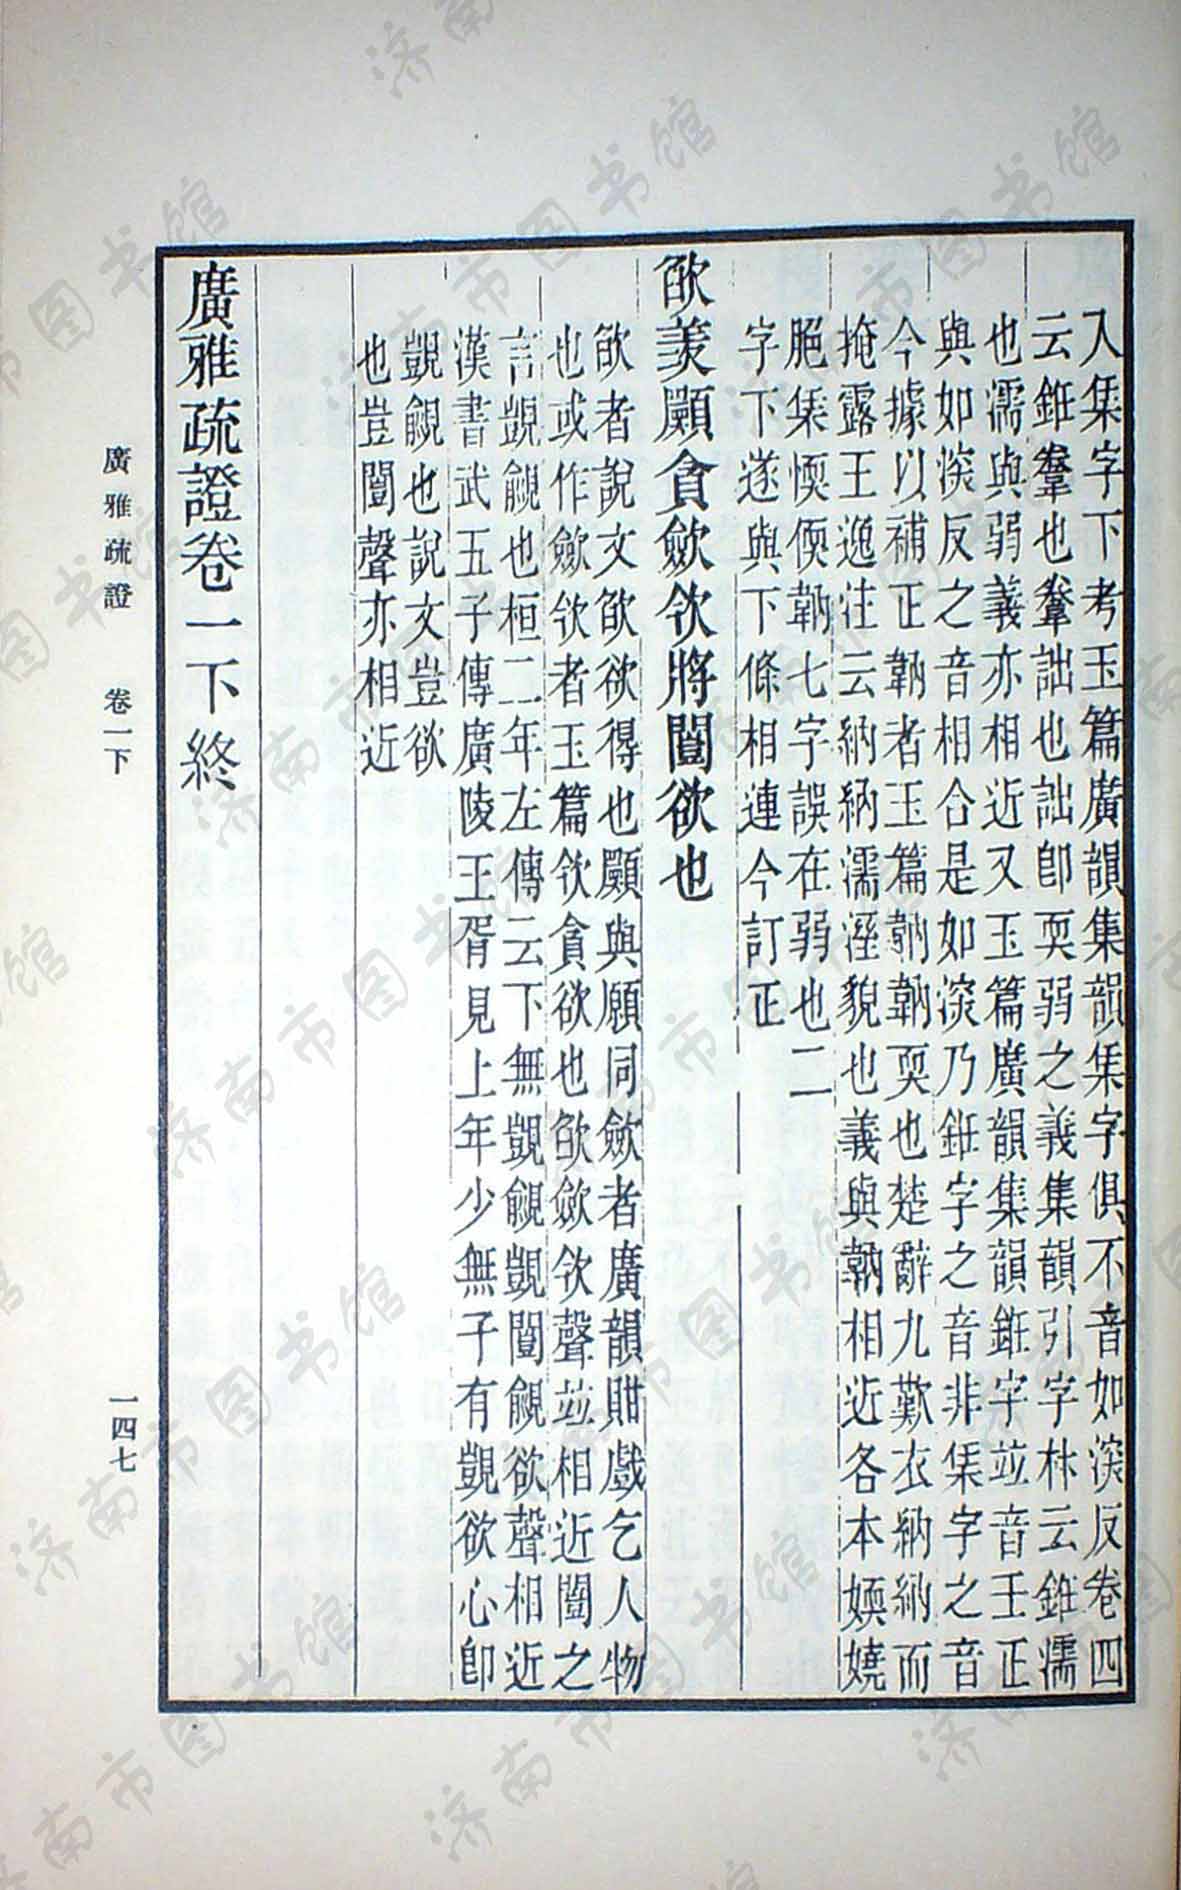 入㒸字下考玉篇廣韻集韻㒸字俱不音如深反卷四
云銋㲨也㲨詘也詘卽耎弱之義集韻引字林云銋濡
也濡與弱義亦相近又玉篇廣韻集韻銋字竝音壬正
與如深反之音相合是如深乃銋字之音非㒸字之音
今據以補正䩞者玉篇䩞䩞耎也楚辭九歎衣納納而
掩露王逸注云納納濡溼貌也義與䩞相近各本媆嬈
脃㒸愞偄䩞七字誤在弱也二
字下遂與下條相連今訂正
欿羨願貪歛欦將闓欲也
欿者說文欿欲得也願與願同歛者廣韻㽎戲乞人物
也或作歛欦者玉篇欦貪欲也欿歛欦聲竝相近闓之
言覬覦也桓二年左傳云下無覬覦覬闓覦欲聲相近
漢書武五子傳廣陵王胥見上年少無子有覬欲心卽
覬覦也說文豈欲
也豈闓聲亦相近
廣雅疏證卷一下終
廣雅疏證 卷一下
一四七
济南市图书馆